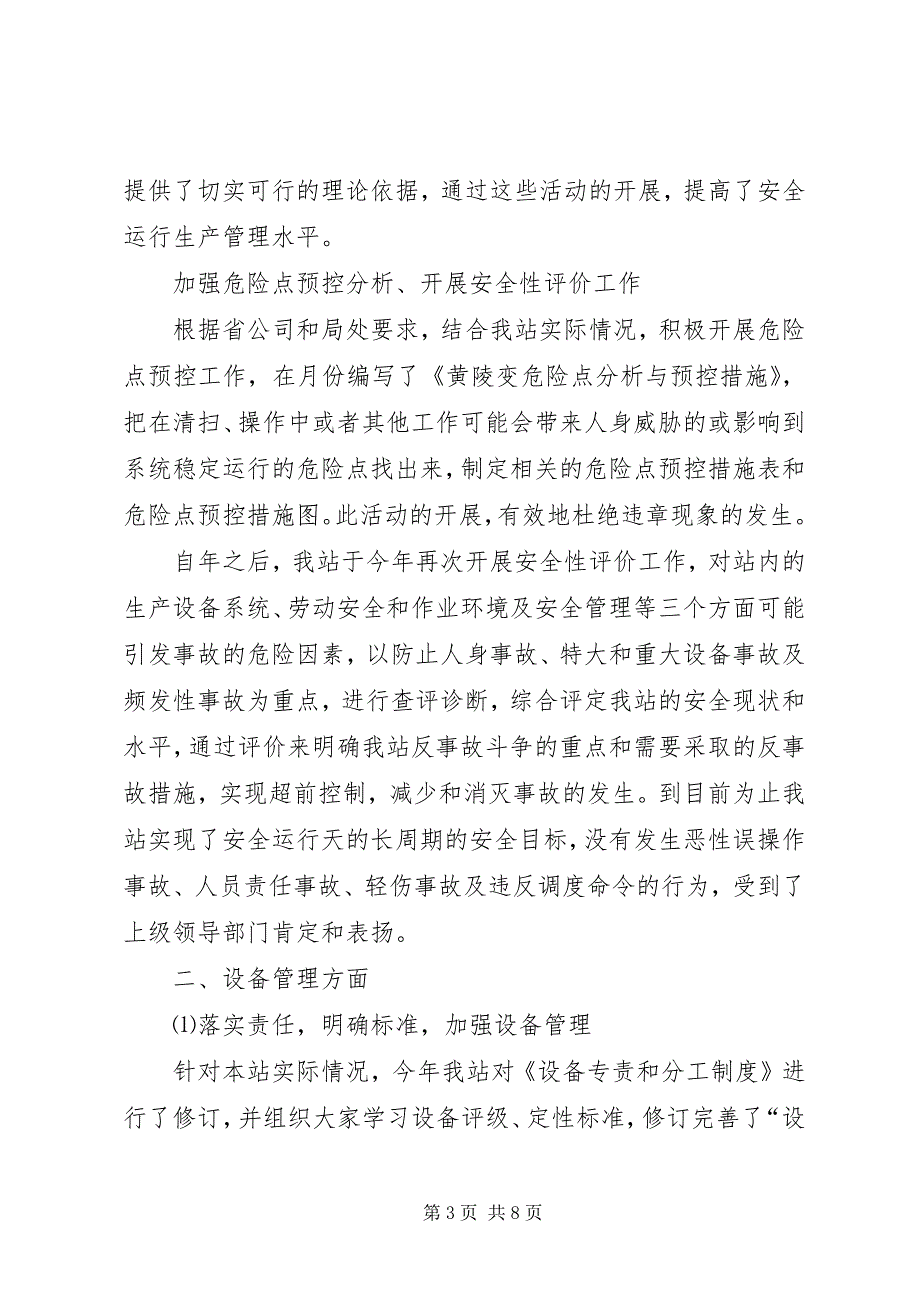 提供了切实可行的理论依据，通过这些活动的开展，提高了安全
运行生产管理水平。
加强危险点预控分析、开展安全性评价工作
根据省公司和局处要求，结合我站实际情况，积极开展危险
点预控工作，在月份编写了《黄陵变危险点分析与预控措施》，
把在清扫、操作中或者其他工作可能会带来人身威胁的或影响到
系统稳定运行的危险点找出来，制定相关的危险点预控措施表和
危险点预控措施图。此活动的开展，有效地杜绝违章现象的发生。
自年之后，我站于今年再次开展安全性评价工作，对站内的
生产设备系统、劳动安全和作业环境及安全管理等三个方面可能
引发事故的危险因素，以防止人身事故、特大和重大设备事故及
频发性事故为重点，进行查评诊断，综合评定我站的安全现状和
水平，通过评价来明确我站反事故斗争的重点和需要采取的反事
故措施，实现超前控制，减少和消灭事故的发生。到目前为止我
站实现了安全运行天的长周期的安全目标，没有发生恶性误操作
事故、人员责任事故、轻伤事故及违反调度命令的行为，受到了
上级领导部门肯定和表扬。
二、设备管理方面
⑴落实责任，明确标准，加强设备管理
针对本站实际情况，今年我站对《设备专责和分工制度》进
行了修订，并组织大家学习设备评级、定性标准，修订完善了“设
第 3 页 共 8 页